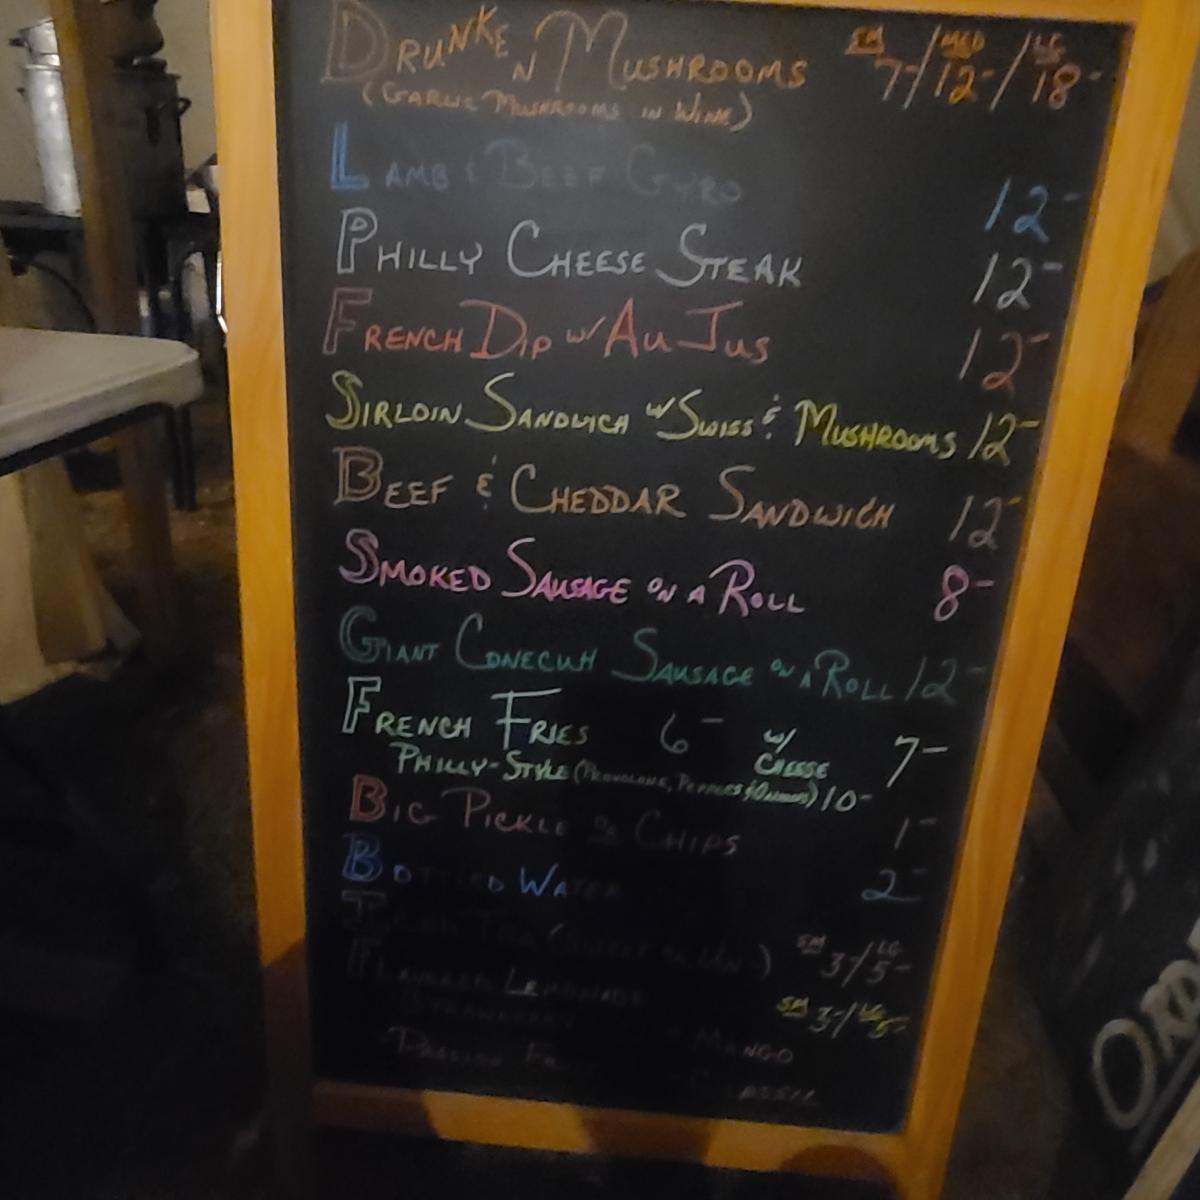 DRUNKEN MUSHROOMS SM 7-/MED 12-/LG 18-
(GARLIC MUSHROOMS IN WINE)
LAMB & BEEF GYRO 12-
PHILLY CHEESE STEAK 12-
FRENCH DIP W/ AU JUS 12-
SIRLOIN SANDWICH W/ SWISS & MUSHROOMS 12-
BEEF & CHEDDAR SANDWICH 12-
SMOKED SAUSAGE ON A ROLL 8-
GIANT CONECUH SAUSAGE ON A ROLL 12-
FRENCH FRIES 6- W/ CHEESE 7-
PHILLY-STYLE (PROVOLONE, PEPPERS & ONIONS) 10-
BIG PICKLE OR CHIPS 1-
BOTTLED WATER 2-
TEA (SWEET OR UN-) SM 3-/LG 5-
LEMONADE SM 3-/LG 5-
STRAWBERRY MANGO
PASSION CLASSIC
ORD